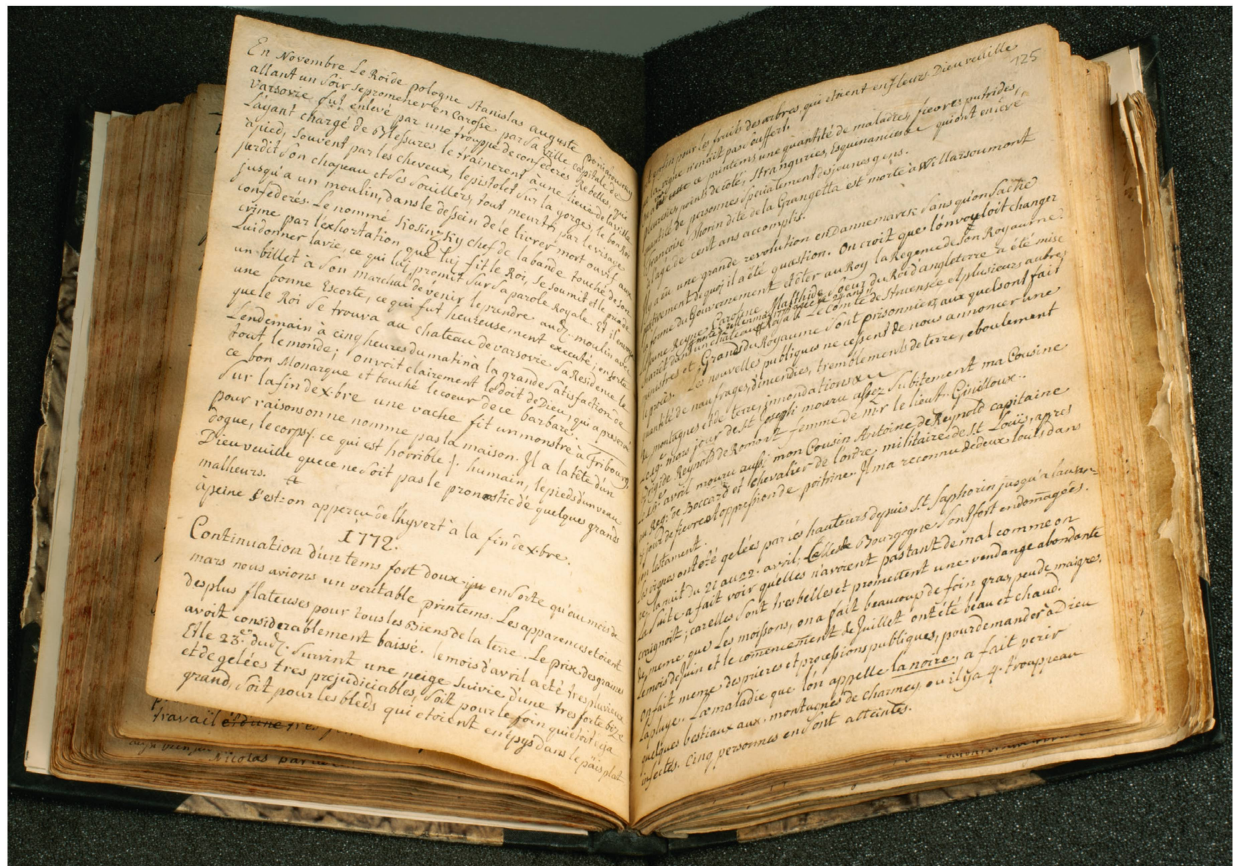 En Novembre Le Roi de pologne Stanislas auguste Poniatowsky
allant un soir se promener en Carosse par sa ville capitale de
varsovie fut enlevé par une trouppe de confederés Rebelles, qui
l'ayant chargé de blessures le trainerent à une lieue de la ville
à pied, souvent par les cheveux, le pistolet sur la gorge, le bon Roi
perdit son chapeau et ses souillers, tout meurtri par le visage
jusqu'a un moulin, dans le dessein de le livrer mort ou vif aux
confederés. Le nommé Kosinsky chef de la bande touché de son
crime par l'exhortation que luy fit le Roi, se soumit et le pria de
Lui donner la vie, ce qui luy promit sur sa parole Royale. Et il
un billet à son marechal de venir le prendre au d. moulin avec
une bonne Escorte, ce qui fut heureusement executé, en sorte
que le Roi se trouva au chateau de varsovie sa Residence le
Lendemain à cinq heures du matin à la grande satisfaction de
tout le monde; l'on vit clairement le doit de Dieu, qui a preservé
ce bon Monarque et touché le coeur de ce barbare.
Sur la fin de xbre une vache fit un monstre à fribourg
pour raison on ne nomme pas la maison. Il a la tête d'un
dogue, le corps, ce qui est horrible, humain, le pieds d'un veau
Dieu veuille que ce ne soit pas le pronostic de quelques grands
malheurs.
à peine s'est-on apperçu de l'hyvert à la fin de xbre.
1772.
Continuation d'un tems fort doux en sorte qu'au mois de
mars nous avions un veritable printems. Les apparences etoient
des plus flateuses pour tous les Biens de la terre. Le prix des graines
avoit considerablement baissé. le mois d'avril a eté tres pluvieux
Et le 23e du d. survint une neige suivie d'une tres forte bize
et de gelées tres prejudiciables, soit pour le foin qui étoit deja
grand, soit pour les bleds qui etoient en epys dans le païs plat
travail
Nicolas
125
enfin pour les fruits des arbres, qui etoient en fleurs. Dieu veüille
n'ait pas souffert.
ce printems une quantité de maladies, fievres putrides,
points de coté, stranguries, Esquinancies qui ont enlevé
quantité de personnes specialement des jeunes gens.
françoise Thorin dite de la Grangetta est morte à Villarsoumont
à l'age de cent ans accomplis.
Il y a eu une grande revolution en dannemarck sans qu'on sache
de quoi il a eté question. On croit que l'on vouloit changer
la forme du Gouvernement et oter au Roy la Regence de son Royaume
Reyne Caroline Mathilde soeur du Roi d'angleterre a eté mise
Royal. Le Comte de Struensée et plusieurs autres
ministres et Grands du Royaume sont prisonniers aux quels on fait
le procès.
Les nouvelles publiques ne cessent de nous annoncer une
quantité de naufrages, d'incendies, tremblements de terre, eboulement
de montagnes et de terre, innondations
mars jour de St. Joseph mourut assez subitement ma Cousine
de Reynold de Romont femme de mr. le lieut. Gruilloux.
avril mourut aussi mon Cousin Antoine de Reynold capitaine
au Reg. de Boccard et chevalier de l'ordre militaire de St. Louis, apres
jours de fievre et oppression de poitrine. Il m'a reconnu de deux louis dans
son testament.
Les vignes ont eté gelées par les hauteurs depuis St. Saphorin jusqu'a lausanne
la nuit du 21 au 22. avril. Celles de Bourgogne sont fort endomagées.
La suite a fait voir quelles n'avoient pas tant de mal comme on
craignoit; car elles sont tres belles et promettent une vendange abondante
de meme que les moissons, on a fait beaucoup de foin gras, peu de maigre.
Le mois de juin et le commencement de Juillet ont eté beau et chaud.
On fait meme des prieres et processions publiques, pour demander à dieu
la pluye. La maladie que l'on appelle la noire, a fait perir
quelques bestiaux aux montagnes de charmey, ou il y a 4 trouppeau
infectés. Cinq personnes en sont atteintes.